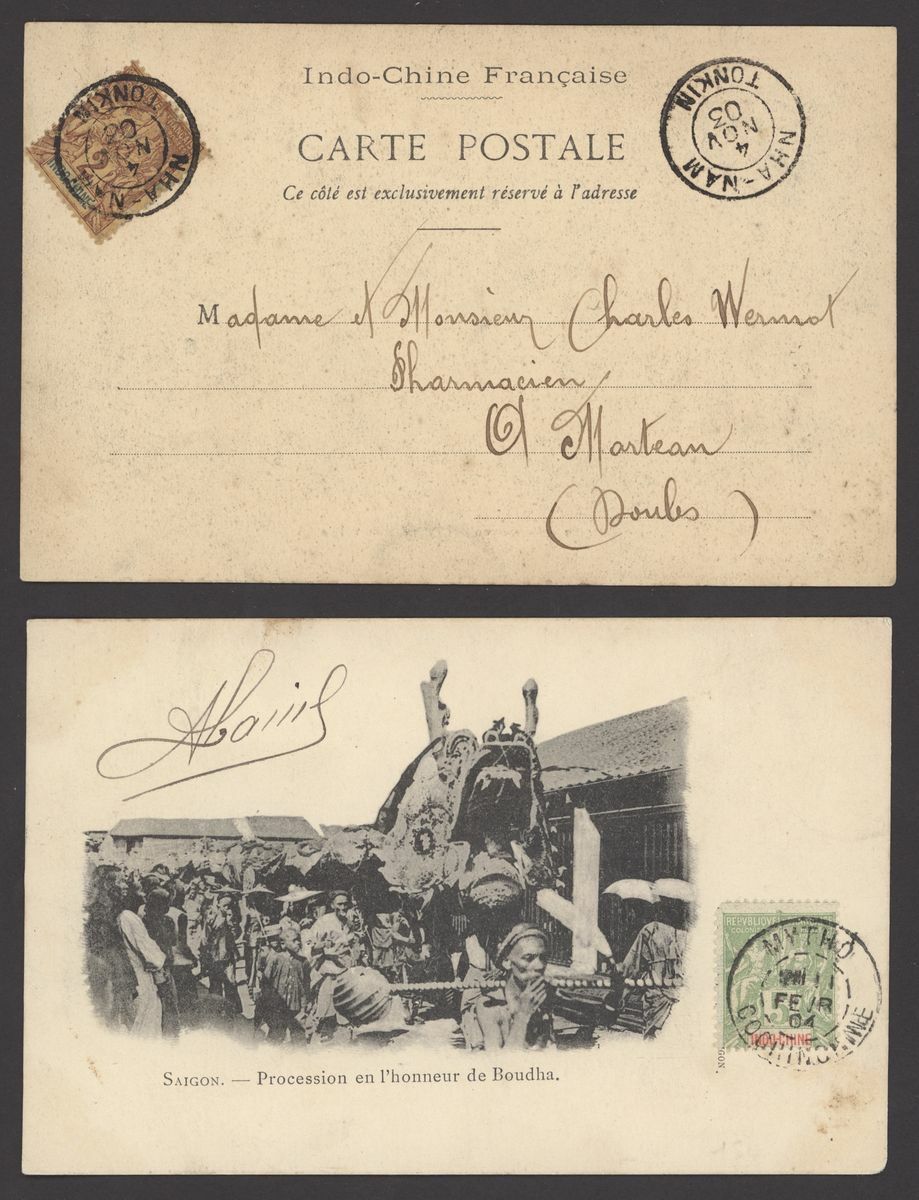 Indo-Chine Française
CARTE POSTALE
Ce côté est exclusivement réservé à l'adresse
NHA-NAM
4
NOV
03
TONKIN
NHA-NAM
4
NOV
03
TONKIN
INDO-CHINE
Madame et Monsieur Charles Wermot
Pharmacien
A Morteau
(Doubs)
SAIGON. — Procession en l'honneur de Boudha.
REPUBLIQUE
COLONIES
INDO-CHINE
MYTHO
FEVR
04
COCHINCHINE
GON.